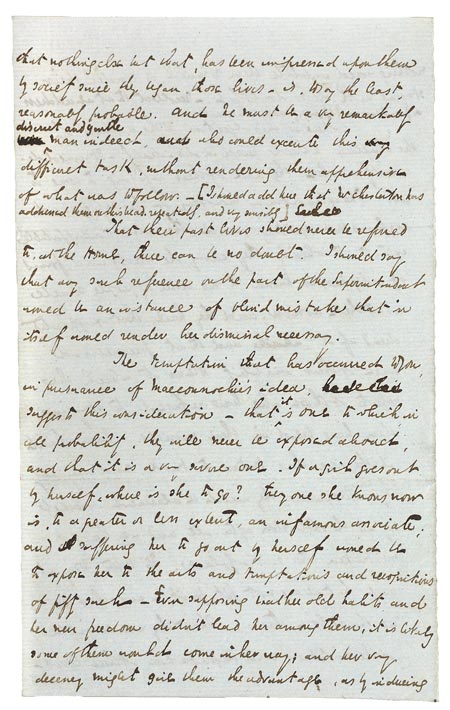 that nothing else but that, has been impressed upon them
by society since they began those lives - is, to say the least,
reasonably probable. And he must be a very remarkably
discreet and gentle
man indeed, who could execute this
difficult task, without rendering them apprehensive
of what was to follow. - [I should add here that Mr Chesterton has
addressed them on this head, repeatedly, and very sensibly]
That their past lives should never be referred
to, at the Home, there can be no doubt. I should say
that any such reference on the part of the Superintendent
would be an instance of blind mistake that in
itself would render her dismissal necessary.
The temptation that has occurred to you,
in pursuance of Macconnochie's idea,
suggests this consideration - that it is one to which, in
all probability, they will never be exposed abroad,
and that it is a very severe one. If a girl goes out
by herself, where is she to go? Every one she knows now
is, to a greater or less extent, an infamous associate;
and suffering her to go out by herself would be
to expose her to the arts and temptations and recognitions
of fifty such - Even supposing that her old habits and
her new freedom didn't lead her among them, it is likely
some of them would come in her way; and her very
decency might give them the advantage, as by inducing